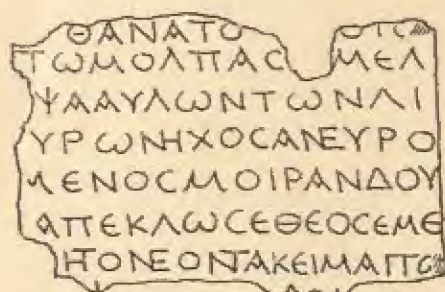 ΘΑΝΑΤΟ ΟΙϹ
ΤΩΜΟΛΠΑϹ ΜΕΛ
ΨΑΑΥΛΩΝΤΩΝΛΙ
ΥΡΩΝΗΧΟϹΑΝΕΥΡΟ
ΜΕΝΟϹΜΟΙΡΑΝΔΟΥ
ΑΠΕΚΛΩϹΕΘΕΟϹΕΜΕ
ΗΤΟΝΕΟΝΤΑΚΕΙΜΑΠΟ